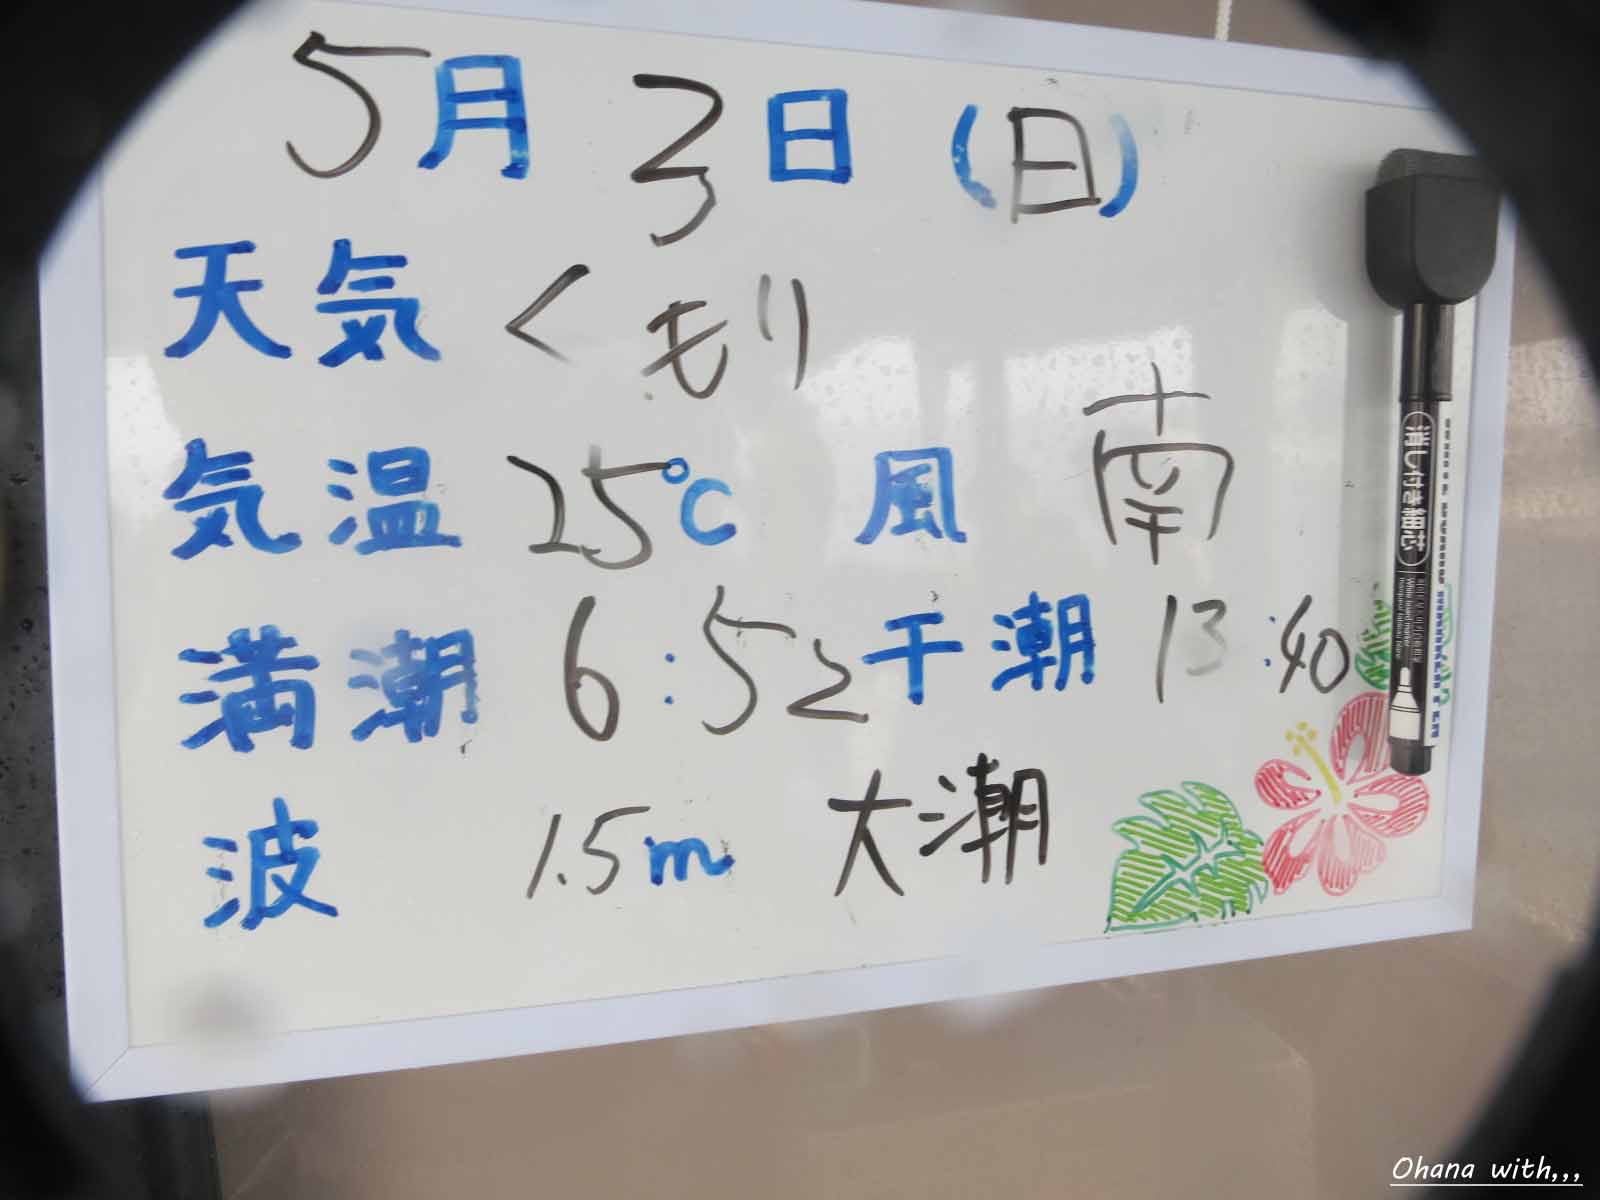 5月 3日 (日)
天気 くもり
気温 25℃ 風 南
満潮 6:52 干潮 13:40
波 1.5m 大潮
消し付き細芯
Ohana with,,,